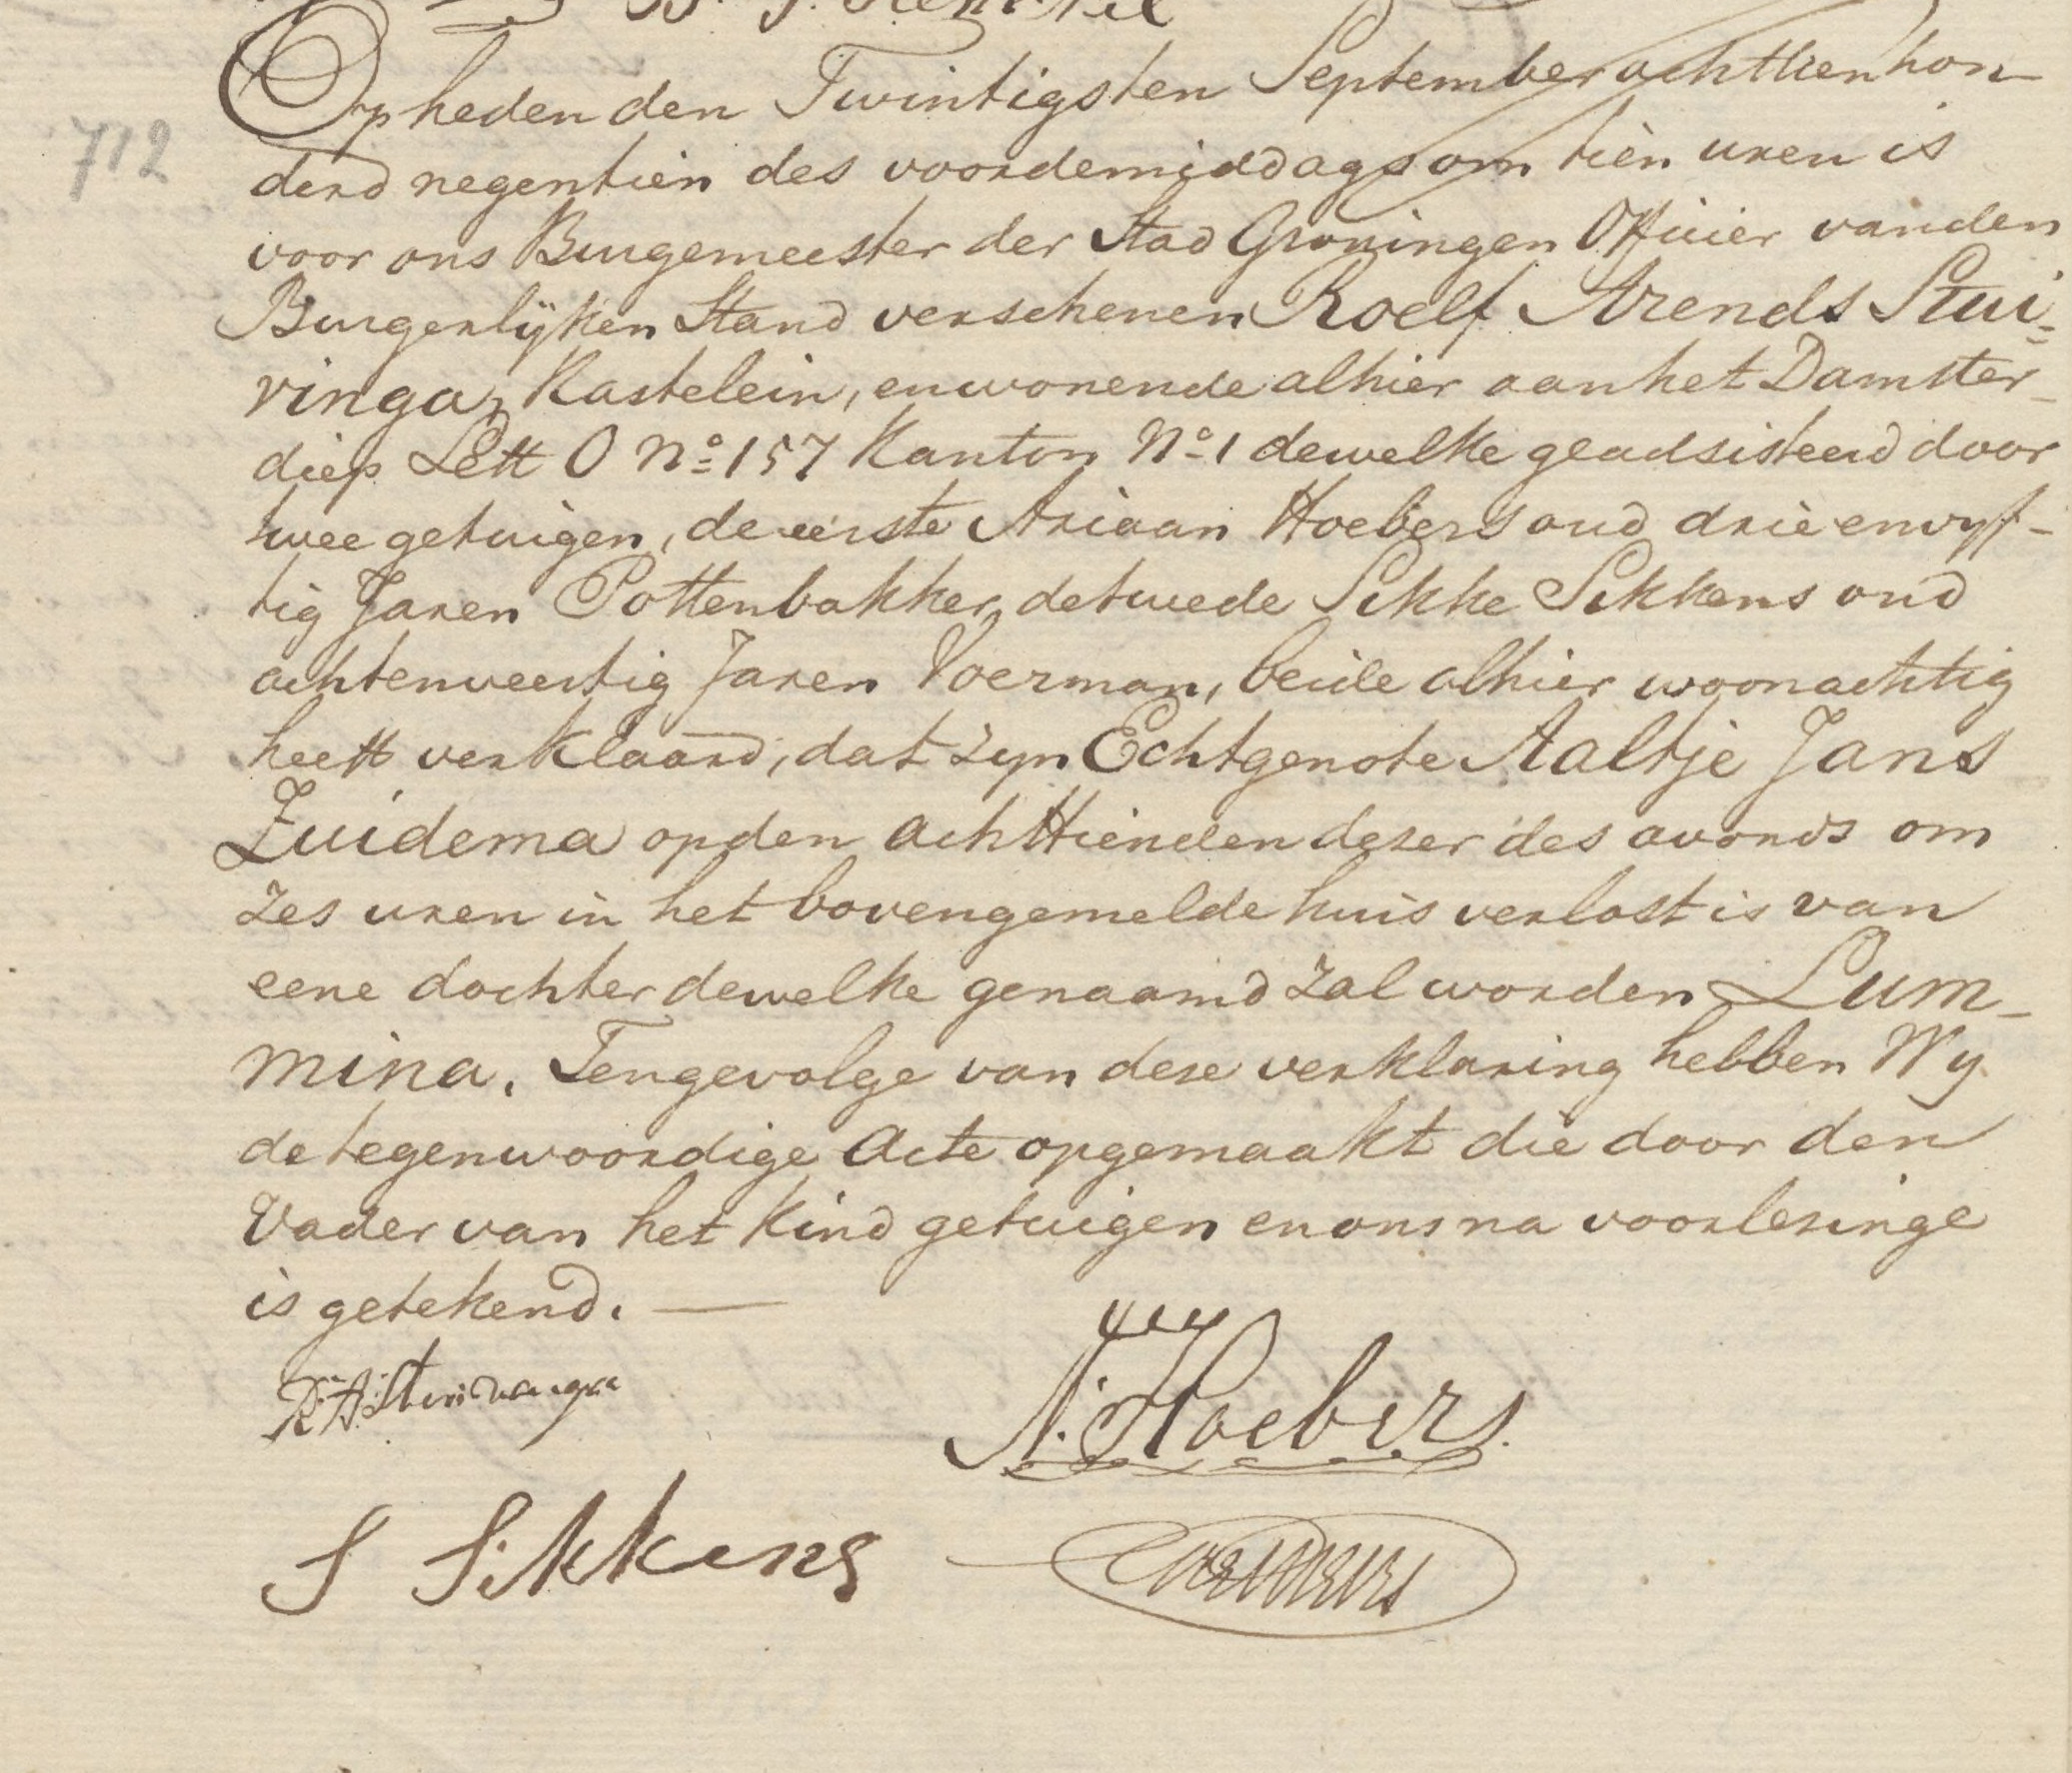 Op heden den Twintigsten September achttien hon
712
derd negentien des voordemiddags om tien uren is
voor ons Burgemeester der Stad Groningen Officier van den
Burgerlijken Stand verschenen Roelf Arends Stui=
vinga, Kastelein, en wonende alhier aan het Damster_
diep Lett O No 157 Kanton No 1 dewelke geadsisteerd door
twee getuigen, de eerste Ariaan Hoebers oud drie en vyf-
tig Jaren Pottenbakker, de twede Sikke Sikkens oud
achtenveertig Jaren Voerman, beide alhier woonachtig
heeft verklaard, dat zyn Echtgenote Aaltje Jans
Zuidema op den achttienden dezer des avonds om
zes uren in het bovengemelde huis verlost is van
eene dochter dewelke genaamd zal worden Lum_
mina. Tengevolge van deze verklaring hebben Wy
de tegenwoordige Acte opgemaakt die door den
Vader van het Kind getuigen en ons na voorlezinge
is getekend. —
R:A:Stuivinga
A. Hoebers.
S Sikkens